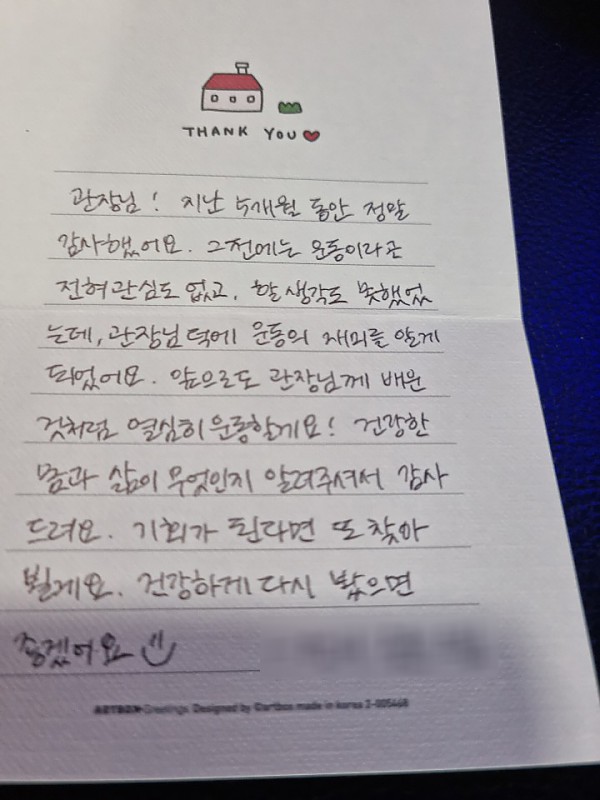 THANK YOU
관장님! 지난 5개월 동안 정말
감사했어요. 그전에는 운동이라곤
전혀 관심도 없고, 할 생각도 못했었
는데, 관장님 덕에 운동의 재미를 알게
되었어요. 앞으로도 관장님께 배운
것처럼 열심히 운동할게요! 건강한
몸과 삶이 무엇인지 알려주셔서 감사
드려요. 기회가 된다면 또 찾아
뵐게요. 건강하게 다시 봤으면
좋겠어요
ARTBOX Greetings. Designed by ©artbox made in korea 2-005468